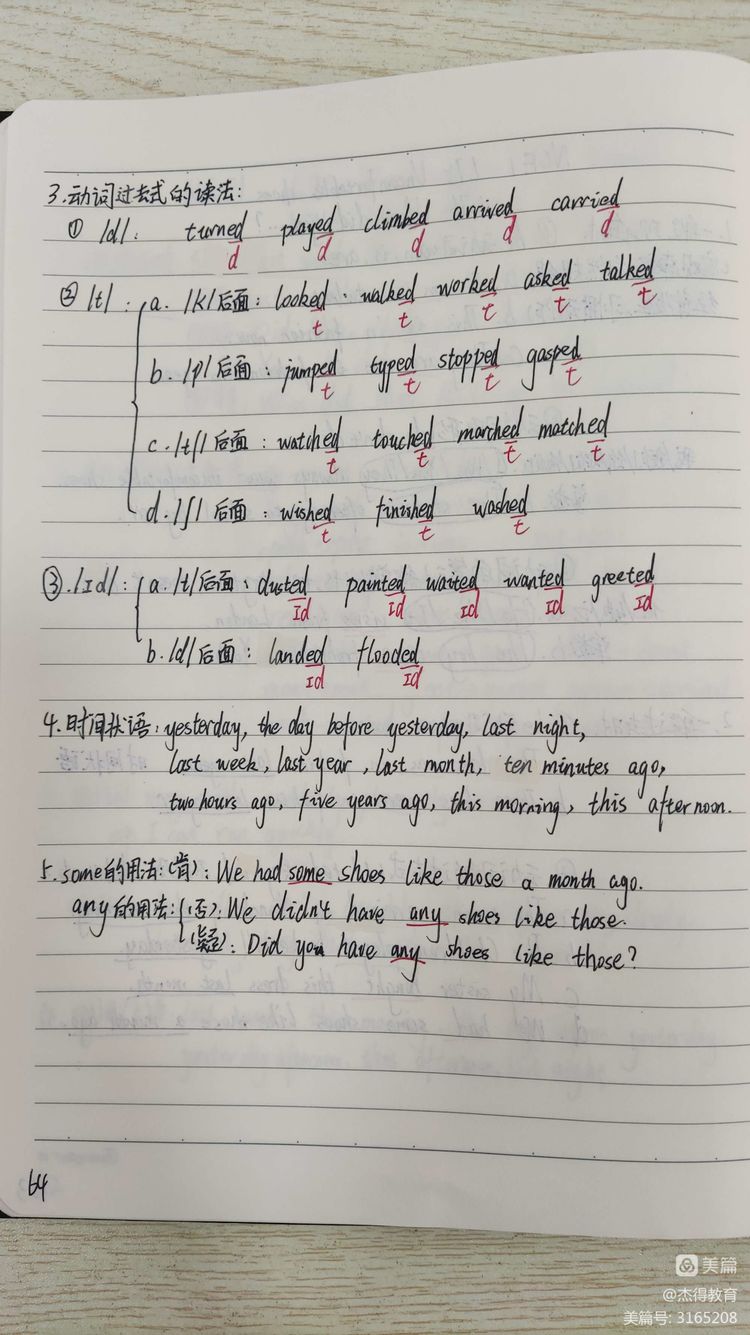 3.动词过去式的读法:
① /d/: turned played climbed arrived carried
d d d d d
② /t/: a. /k/后面: looked. walked worked asked talked
t t t t t
b. /p/后面: jumped typed stopped gasped
t t t t
c. /tʃ/后面: watched touched marched matched
t t t t
d. /ʃ/后面: wished finished washed
t t t
③./ɪd/: a. /t/后面: dusted painted waited wanted greeted
Id Id Id Id Id
b. /d/后面: landed flooded
Id Id
4.时间状语: yesterday, the day before yesterday, last night,
last week, last year, last month, ten minutes ago,
two hours ago, five years ago, this morning, this afternoon.
5.some的用法:(肯): We had some shoes like those a month ago.
any的用法:(否): We didn't have any shoes like those.
(疑): Did you have any shoes like those?
64
美篇
@杰得教育
美篇号: 3165208